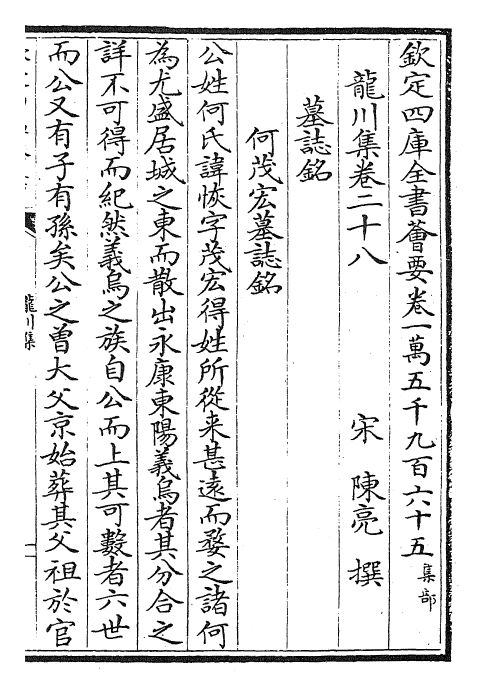 欽定四庫全書薈要卷一萬五千九百六十五 集部
龍川集卷二十八 宋 陳亮 撰
墓誌銘
何茂宏墓誌銘
公姓何氏諱恢字茂宏得姓所從来甚遠而婺之諸何
為尤盛居城之東而散出永康東陽義烏者其分合之
詳不可得而紀然義烏之族自公而上其可數者六世
而公又有子有孫矣公之曽大父京始葬其父祖於官
龍川集
一